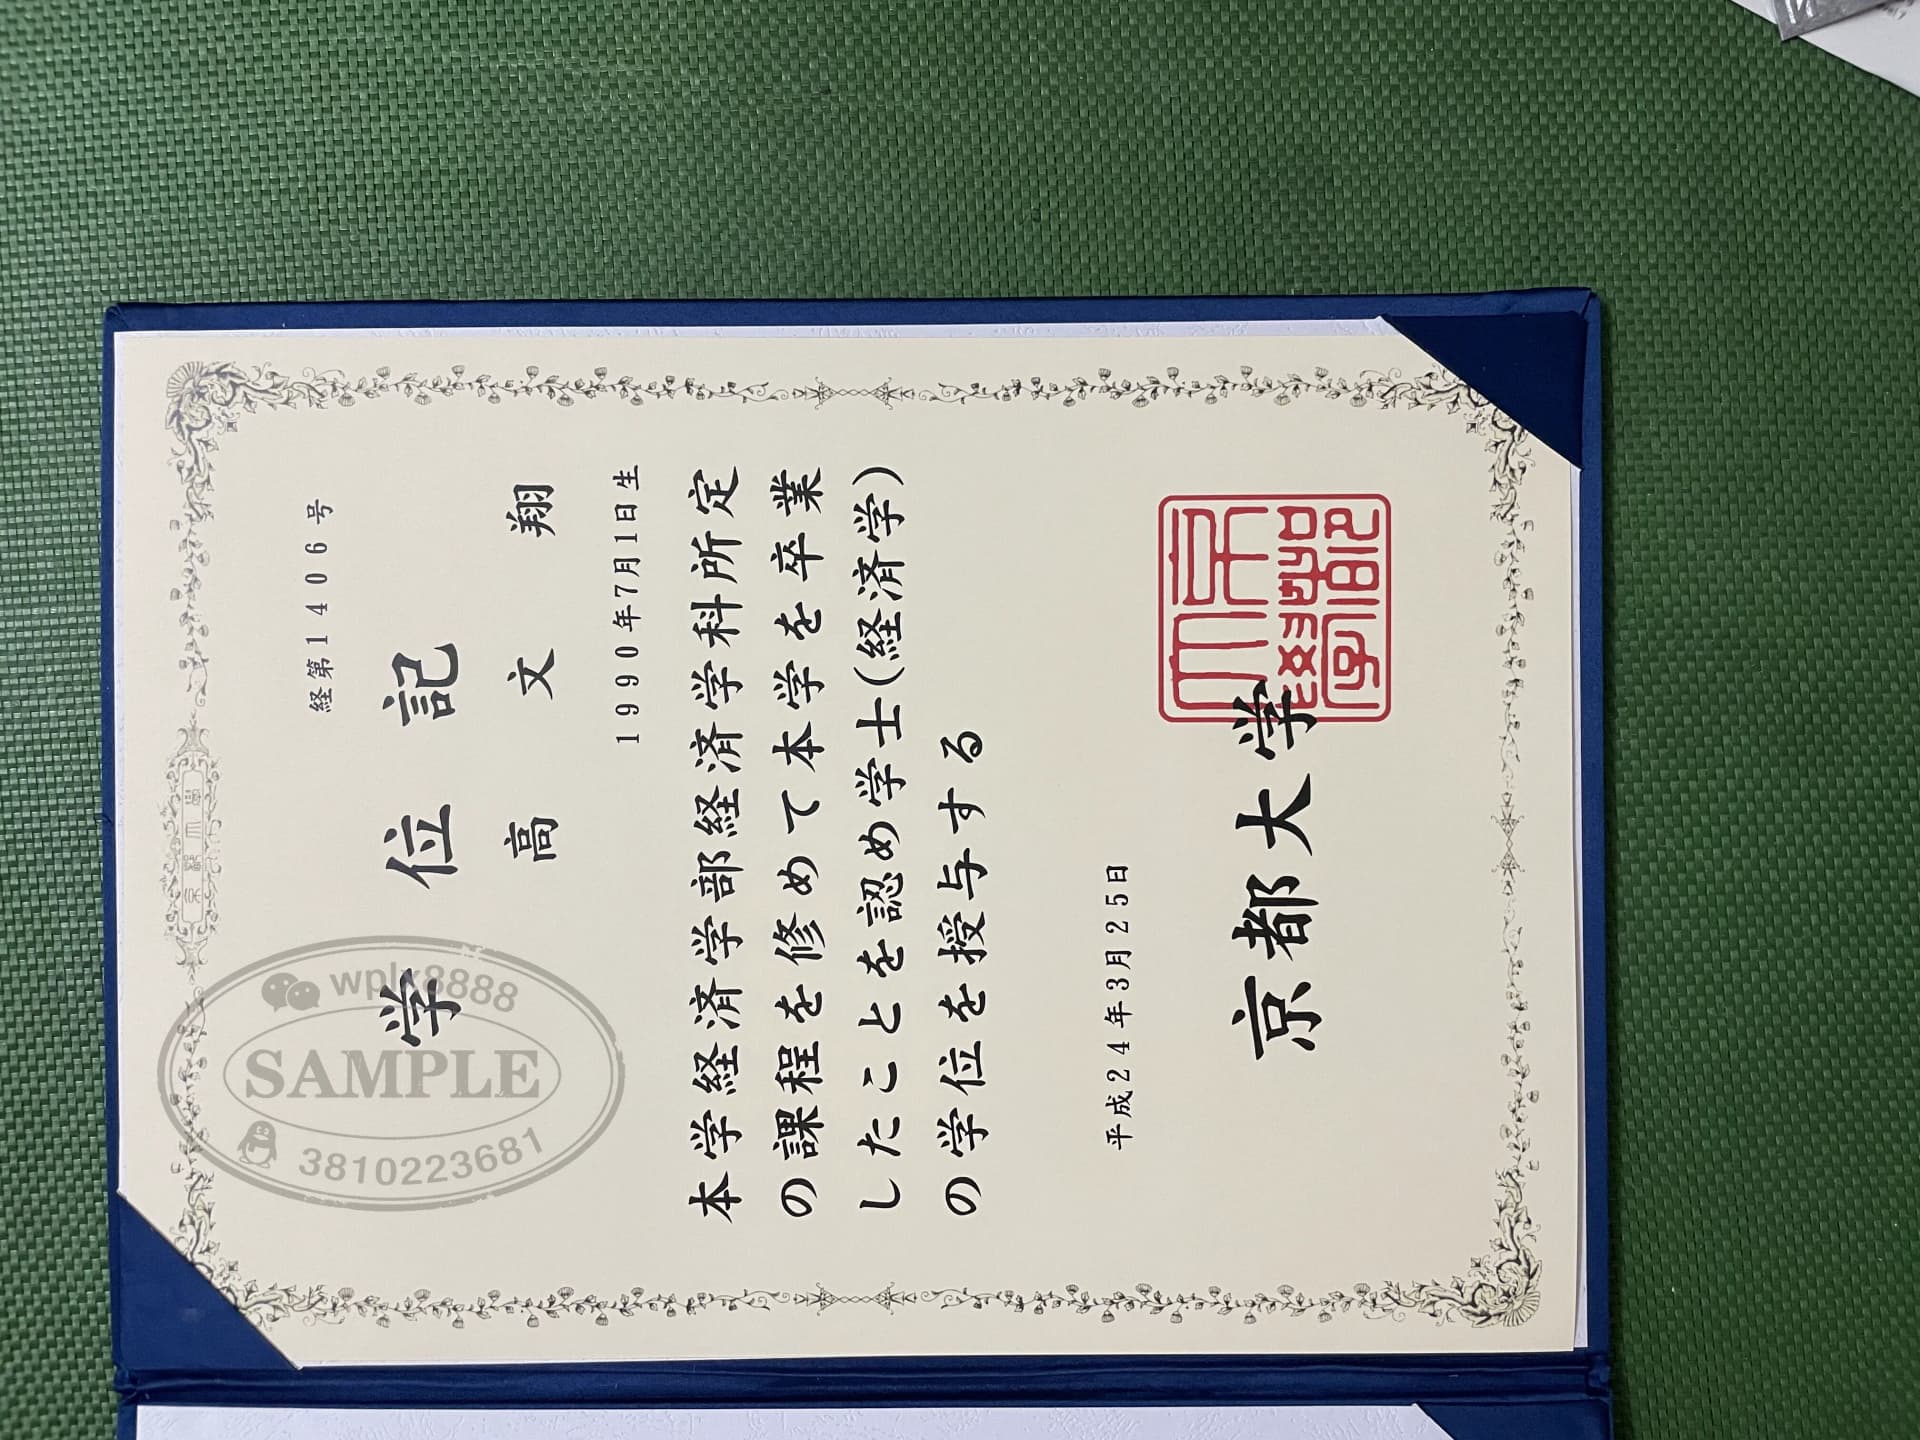 経第1406号
学位記
高文翔
1990年7月1日生
本学経済学部経済学科所定
の課程を修めて本学を卒業
したことを認め学士(経済学)
の学位を授与する
平成24年3月25日
京都大学
wplx8888
SAMPLE
3810223681